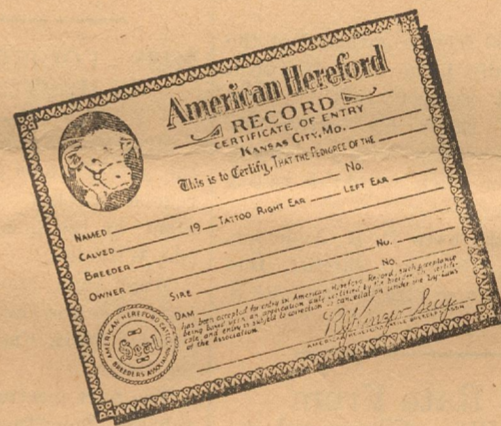 American Hereford
RECORD
CERTIFICATE OF ENTRY
KANSAS CITY, MO.
This is to Certify, THAT THE PEDIGREE OF THE
NAMED No.
CALVED 19 TATTOO RIGHT EAR LEFT EAR
BREEDER
OWNER
SIRE No.
DAM No.
has been accepted for entry in American Hereford Record, such acceptance
being based upon an application duly certified by the breeder
cate, and entry is subject to correction or cancellation under the by laws
of the Association.
AMERICAN HEREFORD CATTLE
BREEDERS ASSOCIATION
Seal
Secy.